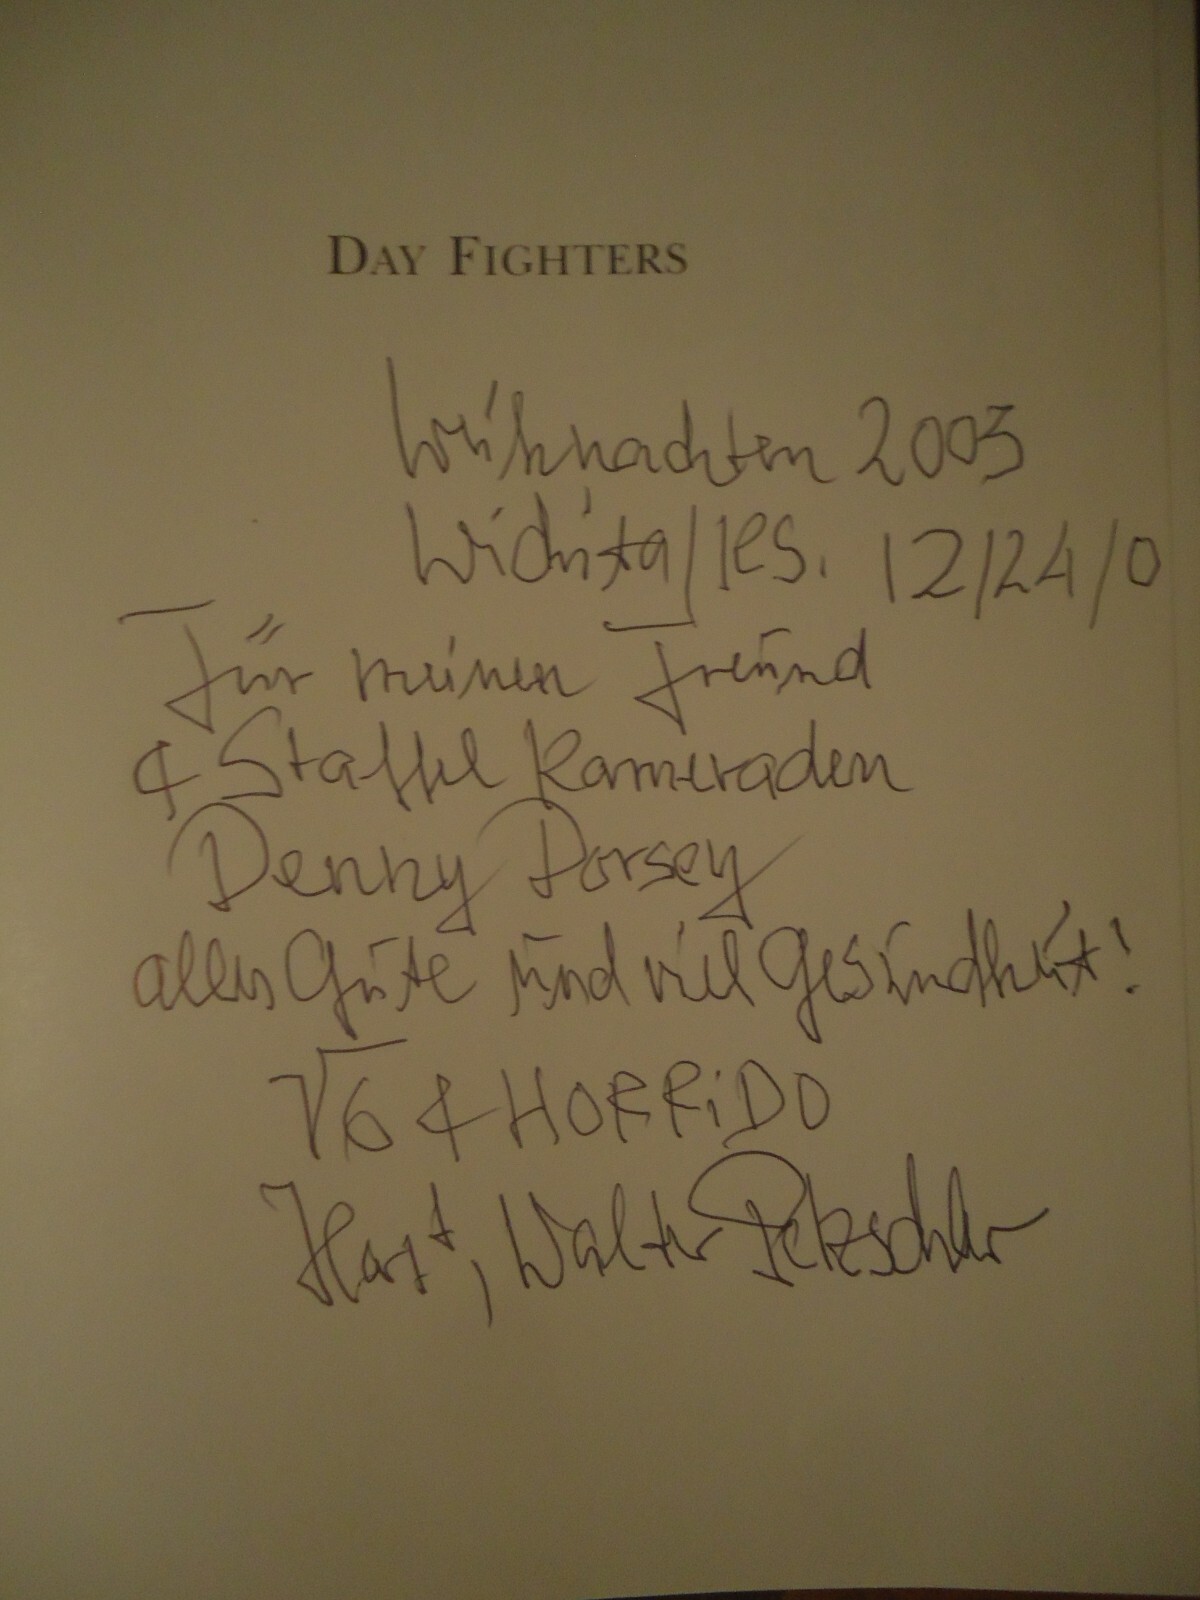 DAY FIGHTERS
Weihnachten 2003
Wichita/KS. 12/24/0
Für meinen Freund
& Staffel Kameraden
Denny Dorsey
alles Gute und viel Gesundheit!
V6 & HORRiDO
Horst, Walter Petzschler